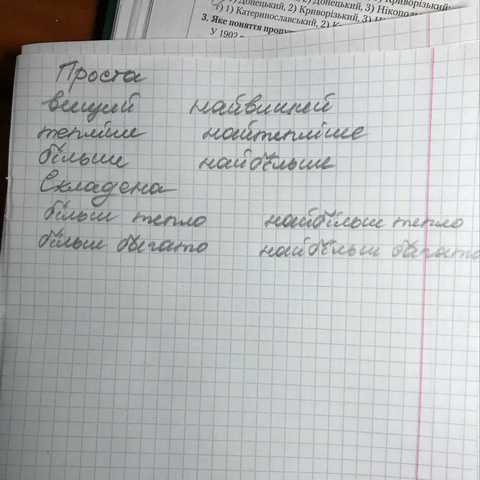 1) Донецький, 2) Криворізький, 3) Нікополь
3. Яке поняття пропу
У 1902
Проста
вищий найвищий
тепліше найтепліше
більше найбільше
Складена
більш тепло найбільш тепло
більш багато найбільш багато